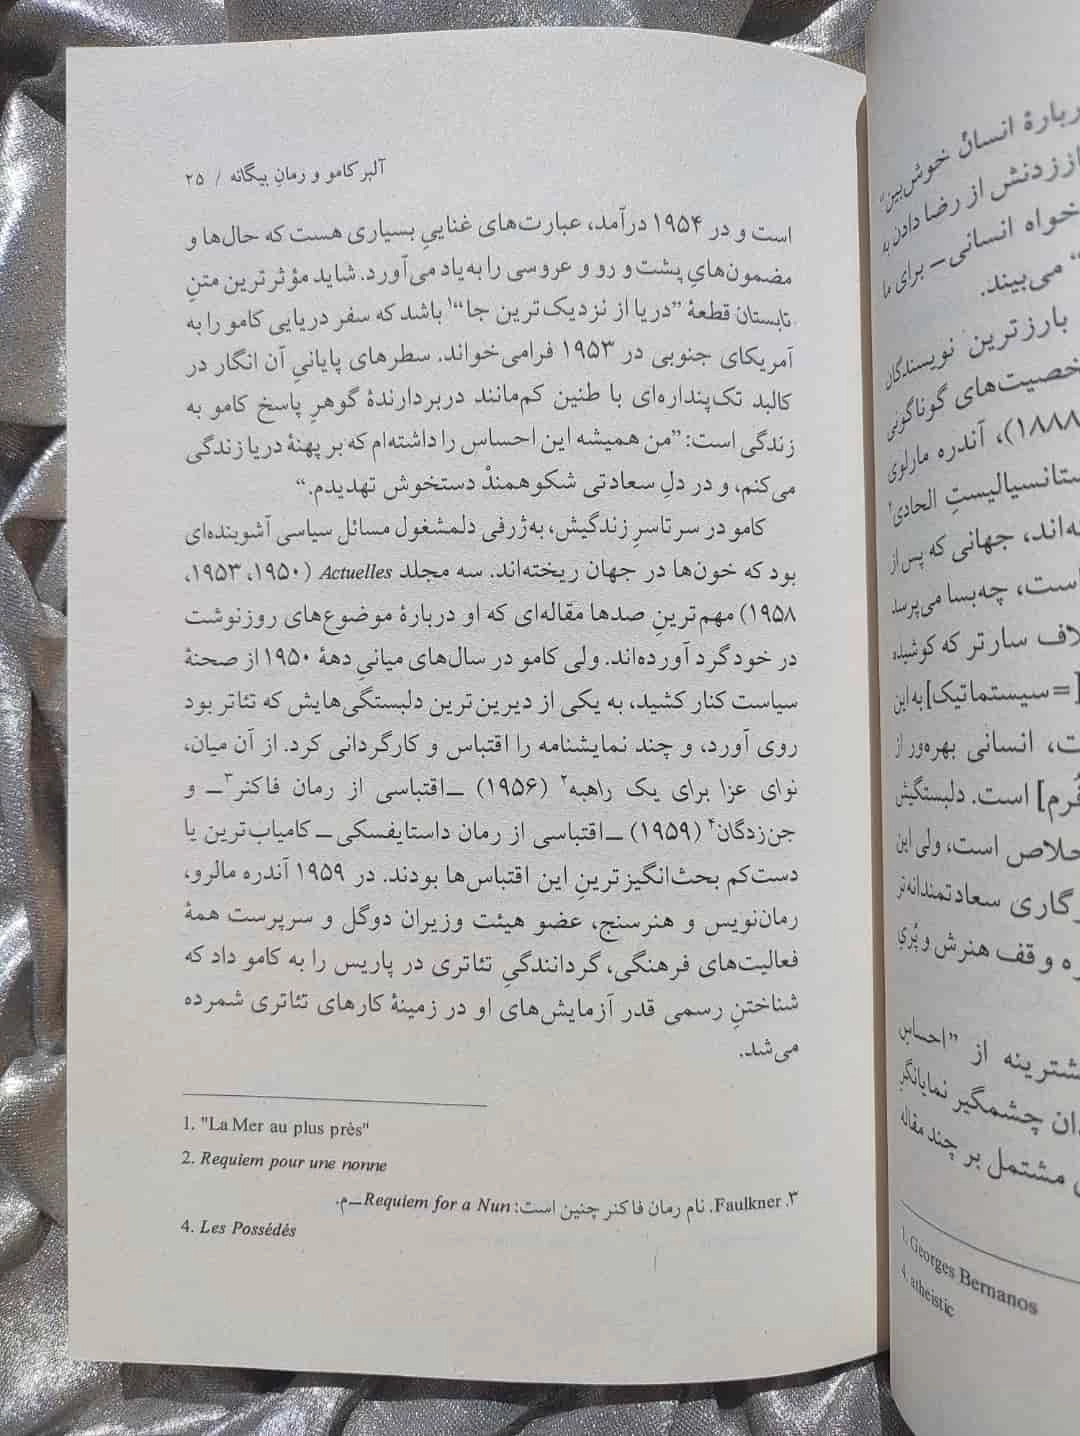 آلبر کامو و رمانِ بیگانه / ۲۵
است و در ۱۹۵۴ درآمد، عبارت‌های غناییِ بسیاری هست که حال‌ها و
مضمون‌هایِ پشت و رو و عروسی را به‌یاد می‌آورد. شاید مؤثرترین متنِ
تابستان قطعهٔ ”دریا از نزدیک‌ترین جا“۱ باشد که سفر دریایی کامو را به
آمریکای جنوبی در ۱۹۵۳ فرامی‌خواند. سطرهای پایانیِ آن انگار در
کالبد تک‌پنداره‌ای با طنین کم‌مانند دربردارندهٔ گوهرِ پاسخ کامو به
زندگی است: ”من همیشه این احساس را داشته‌ام که بر پهنهٔ دریا زندگی
می‌کنم، و در دلِ سعادتی شکوهمندْ دستخوش تهدیدم.“
کامو در سرتاسرِ زندگیش، به‌ژرفی دلمشغول مسائل سیاسی آشوبنده‌ای
بود که خون‌ها در جهان ریخته‌اند. سه مجلد Actuelles (۱۹۵۰، ۱۹۵۳،
۱۹۵۸) مهم‌ترینِ صدها مقاله‌ای که او دربارهٔ موضوع‌های روز نوشت
در خود گرد آورده‌اند. ولی کامو در سال‌های میانیِ دههٔ ۱۹۵۰ از صحنهٔ
سیاست کنار کشید، به یکی از دیرین‌ترین دلبستگی‌هایش که تئاتر بود
روی آورد، و چند نمایشنامه را اقتباس و کارگردانی کرد. از آن میان،
نوای عزا برای یک راهبه۲ (۱۹۵۶) ــ‌اقتباسی از رمان فاکنر۳ــ و
جن‌زدگان۴ (۱۹۵۹) ــ‌اقتباسی از رمان داستایفسکی‌ــ کامیاب‌ترین یا
دست‌کم بحث‌انگیزترینِ این اقتباس‌ها بودند. در ۱۹۵۹ آندره مالرو،
رمان‌نویس و هنرسنج، عضو هیئت وزیران دوگل و سرپرست همهٔ
فعالیت‌های فرهنگی، گردانندگیِ تئاتری در پاریس را به کامو داد که
شناختنِ رسمی قدر آزمایش‌های او در زمینهٔ کارهای تئاتری شمرده
می‌شد.
1. "La Mer au plus près"
2. Requiem pour une nonne
۳. Faulkner. نام رمان فاکنر چنین است: Requiem for a Nun ــ‌م.
4. Les Possédés
ربارهٔ انسانْ خوش‌بین“
از زدنش از رضا دادن به
خواه انسانی‌ــ برای ما
“ می‌بیند.
بارزترین نویسندگان
خصیت‌های گوناگونی
۱۸۸۸)، آندره مارلوی
ستانسیالیستِ الحادی۴
ه‌اند، جهانی که پس از
است، چه‌بسا می‌پرسد
لاف سارتر که کوشیده
[=سیستماتیک] به این
ت، انسانی بهره‌ور از
فُرم] است. دلبستگیش
خلاص است، ولی این
رگاری سعادتمندانه‌تر
ره وقف هنرش و بُریِ
شترینه از ”احساس
دان چشمگیر نمایانگرِ
مشتمل بر چند مقاله
1. Georges Bernanos
4. atheistic